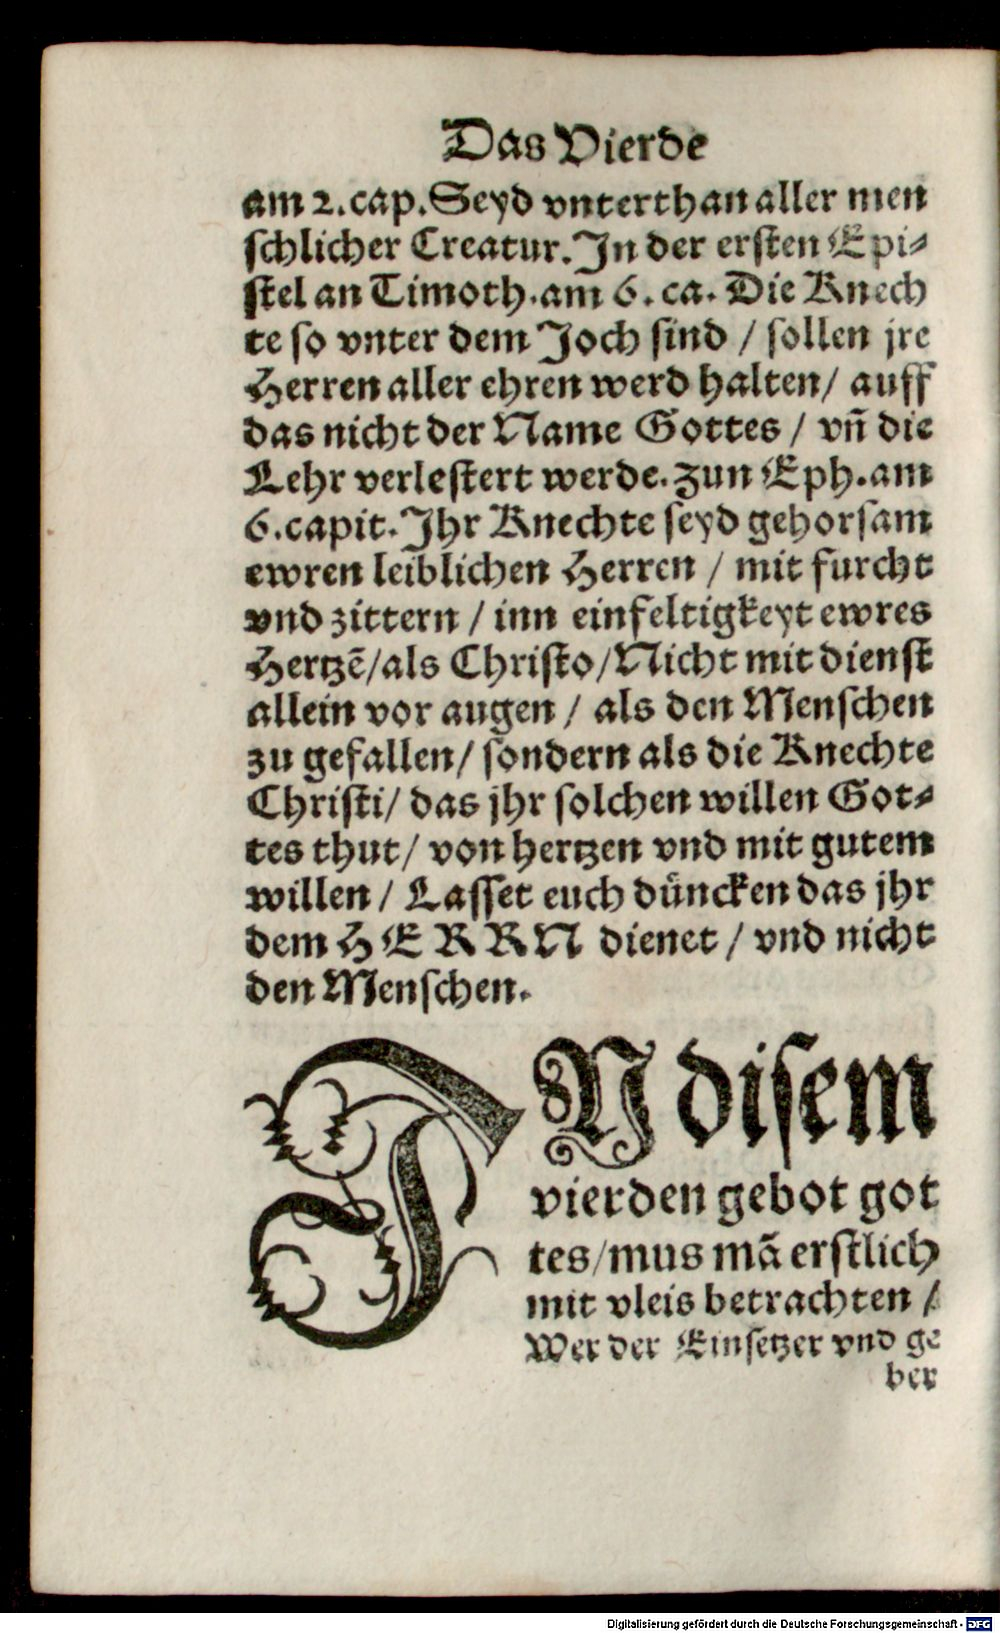 Das Vierde
am 2.cap.Seyd vnterthan aller men
schlicher Creatur. In der ersten Epi⸗
stel an Timoth.am 6. ca. Die Knech
te so vnter dem Joch sind / sollen jre
Herren aller ehren werd halten/ auff
das nicht der Name Gottes / vn̄ die
Lehr verlestert werde. zun Eph.am
6.capit. Ihr Knechte seyd gehorsam
ewren leiblichen Herren / mit furcht
vnd zittern / inn einfeltigkeyt ewres
Hertzē/als Christo/Nicht mit dienst
allein vor augen / als den Menschen
zu gefallen/ sondern als die Knechte
Christi/ das jhr solchen willen Got⸗
tes thut/ von hertzen vnd mit gutem
willen / Lasset euch düncken das jhr
dem HERRN dienet / vnd nicht
den Menschen.
IN disem
vierden gebot got
tes/mus mā erstlich
mit vleis betrachten /
Wer der Einsetzer vnd ge
ber
Digitalisierung gefördert durch die Deutsche Forschungsgemeinschaft - DFG